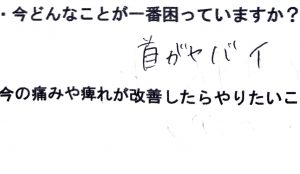 ・今どんなことが一番困っていますか？
首がヤバイ
今の痛みや痺れが改善したらやりたいこ